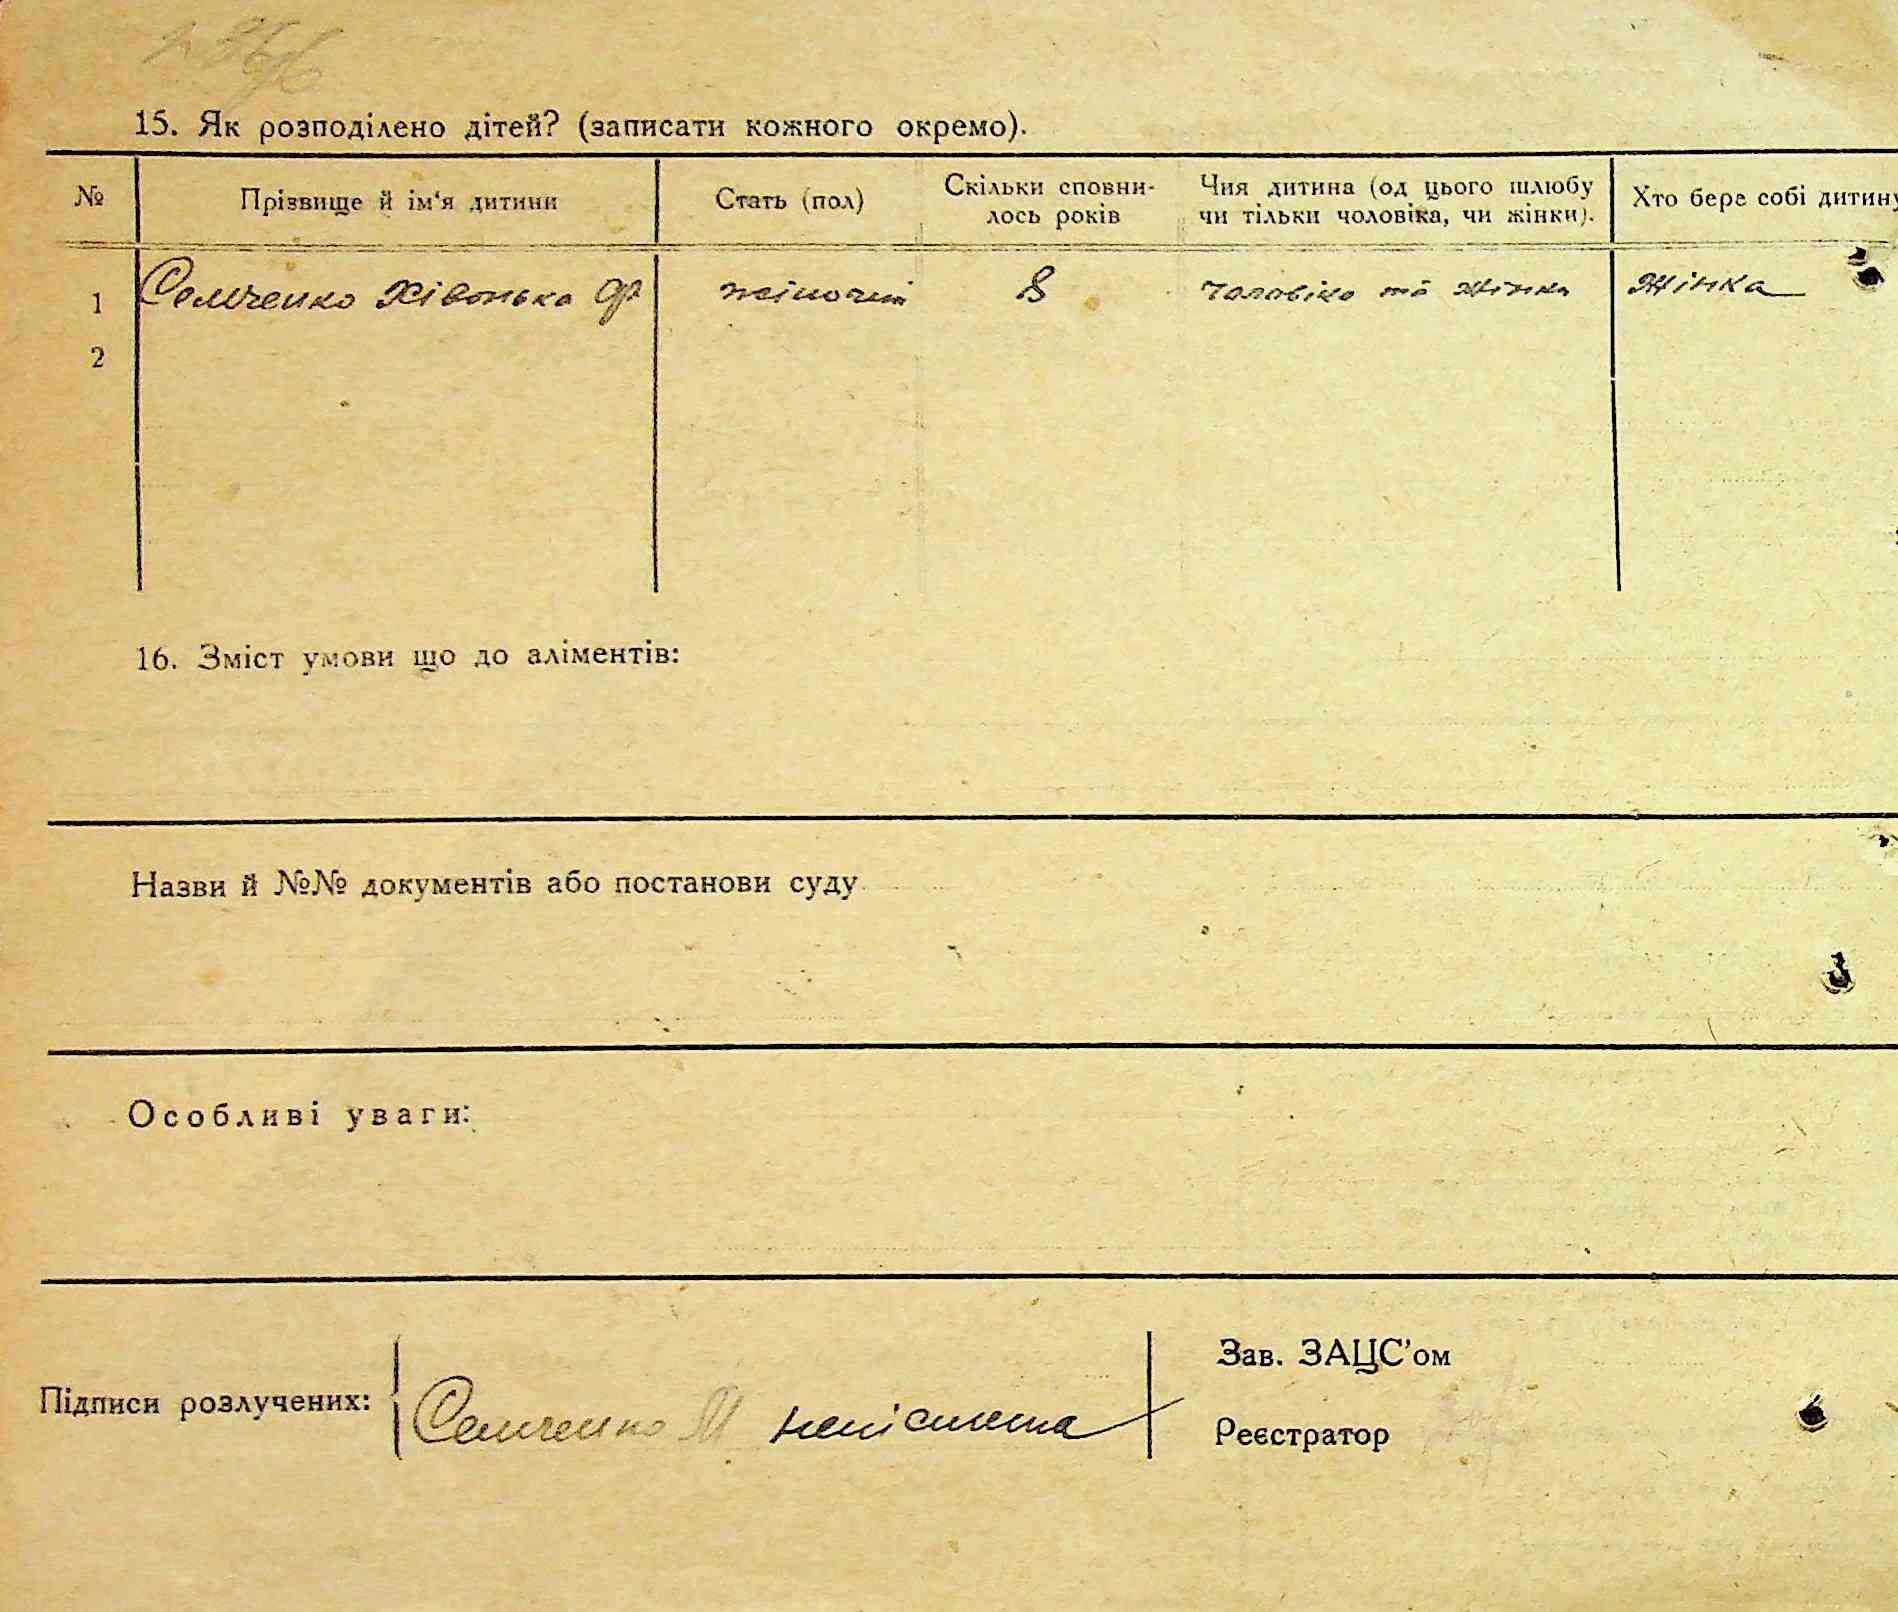 15. Як розподілено дітей? (записати кожного окремо).
№ Прізвище й ім‘я дитини Стать (пол) Скільки сповни-лось років Чия дитина (од цього шлюбу чи тільки чоловіка, чи жінки). Хто бере собі дитину
1 Семченко жіночий 8 чоловіка та жінки Жінка
2
16. Зміст умови що до аліментів:
Назви й №№ документів або постанови суду
Особливі уваги:
Зав. ЗАЦС’ом
Підписи розлучених: Семченко М неписьмена
Реєстратор